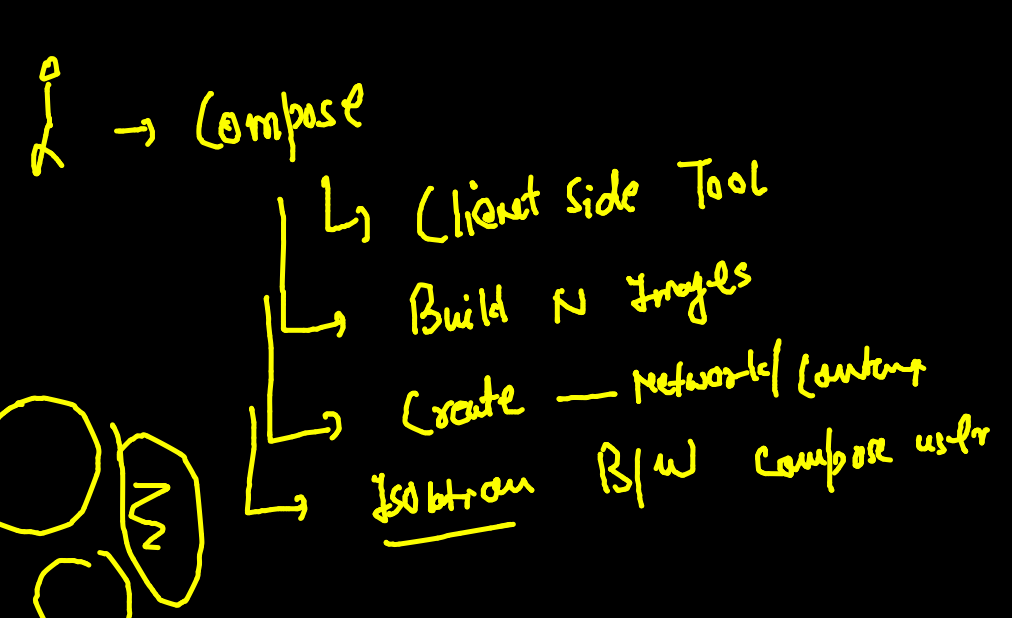 → Compose
Client Side Tool
Build N Images
Create — Network/
Isolation B/W Compose user